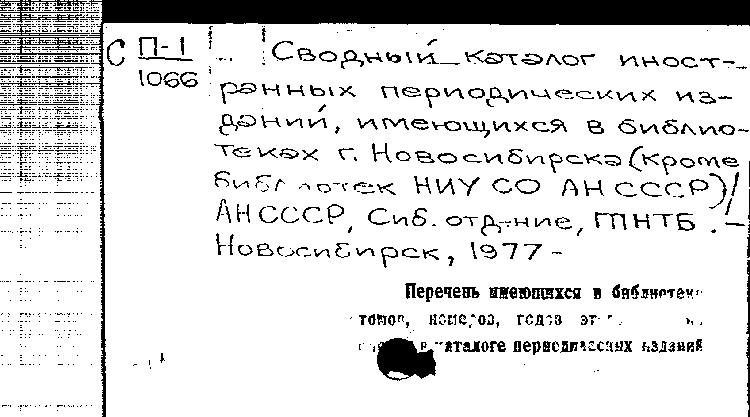 С П-1
1066
Сводный каталог иност-
ранных периодических из-
даний, имеющихся в библио-
теках г. Новосибирска (кроме
библиотек НИУ СО АН СССР) /
АН СССР, Сиб. отд-ние, ГПНТБ. -
Новосибирск, 1977 -
Перечень имеющихся в библиотеке
томов, номеров, годов
в каталоге периодических изданий